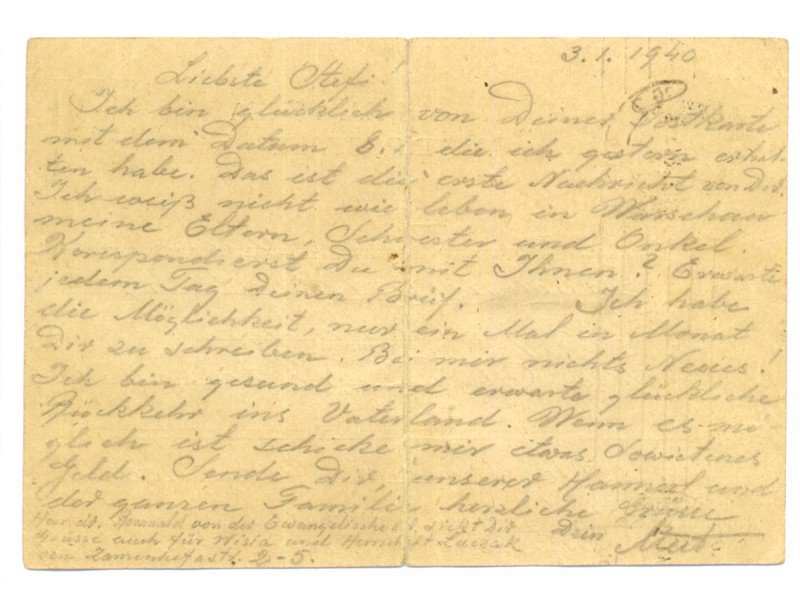 3. 1. 1940
Liebste Stefi!
Ich bin glücklich von Deiner Postkarte
mit dem Datum 8. die ich gestern erhal-
ten habe. Das ist die erste Nachricht von Dir.
Ich weiß nicht wie leben in Warschau
meine Eltern, Schwester und Onkel.
Korespondierst Du mit Ihnen? Erwarte
jedem Tag Deinen Brief. Ich habe
die Möglichkeit, nur ein Mal in Monat
Dir zu schreiben. Bei mir nichts Neues!
Ich bin gesund und erwarte glückliche
Rückkehr ins Vaterland. Wenn es mö-
glich ist schicke mir etwas Sowietenes
Geld. Sende Dir, unserer und
der ganzen Familie herzliche Grüsse
Dein
von der Ewangelische
Grüsse auch für Misia und Herrschaft
2-5.